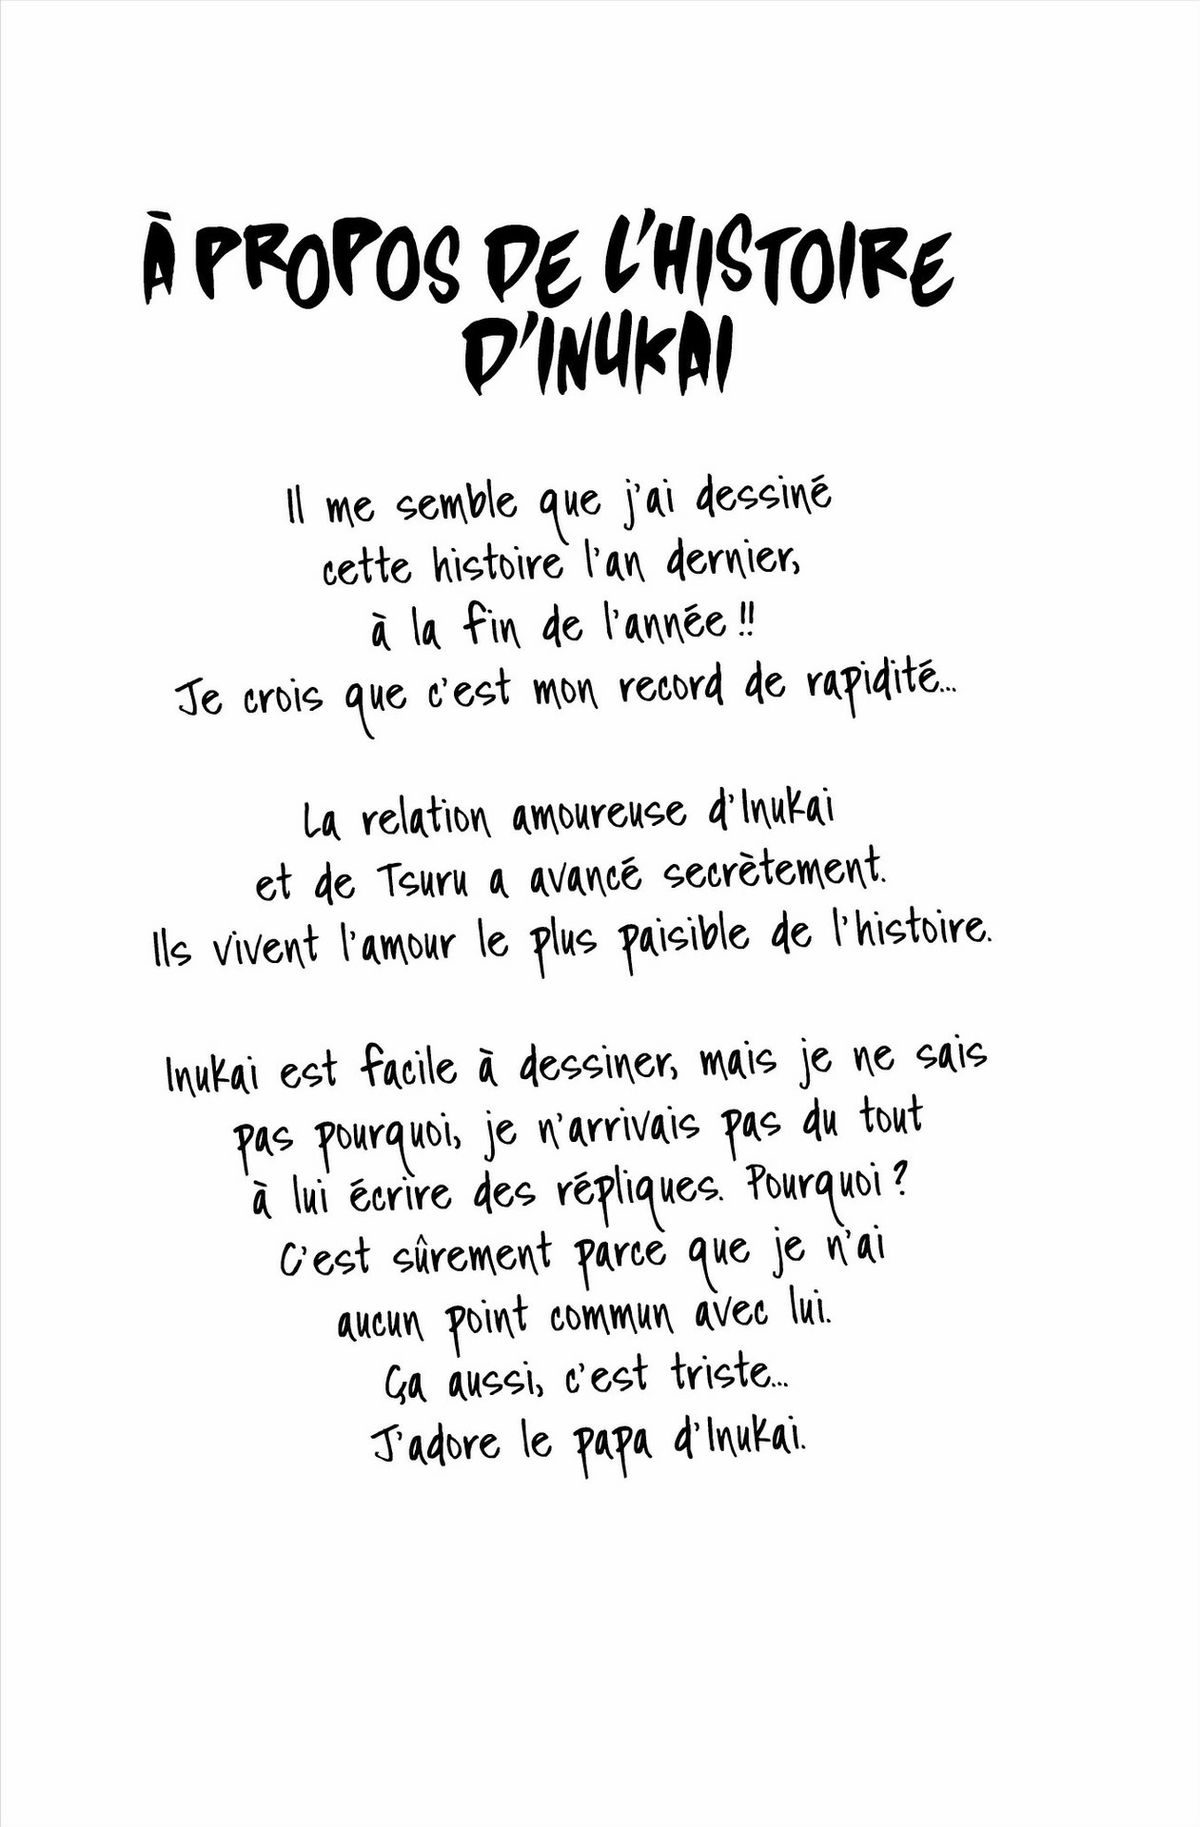 À PROPOS DE L'HISTOIRE
D'INUKAI
Il me semble que j'ai dessiné
cette histoire l'an dernier,
à la fin de l'année !!
Je crois que c'est mon record de rapidité...
La relation amoureuse d'Inukai
et de Tsuru a avancé secrètement.
Ils vivent l'amour le plus paisible de l'histoire.
Inukai est facile à dessiner, mais je ne sais
pas pourquoi, je n'arrivais pas du tout
à lui écrire des répliques. Pourquoi ?
C'est sûrement parce que je n'ai
aucun point commun avec lui.
Ça aussi, c'est triste...
J'adore le papa d'Inukai.